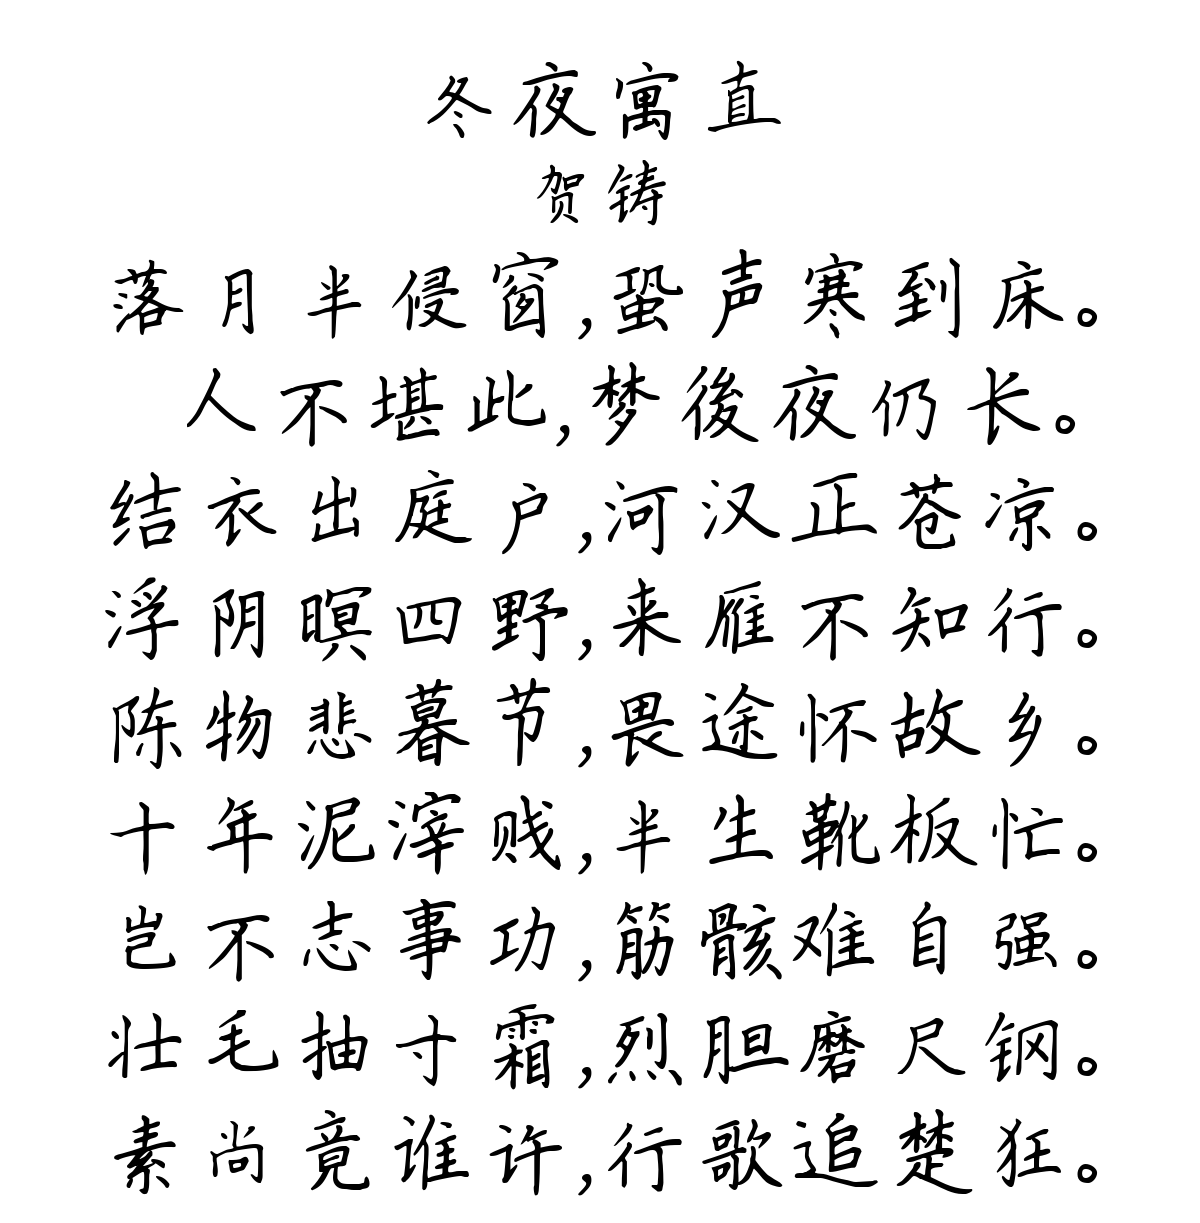 冬夜寓直
贺铸
落月半侵窗,蛩声寒到床。
人不堪此,梦後夜仍长。
结衣出庭户,河汉正苍凉。
浮阴暝四野,来雁不知行。
陈物悲暮节,畏途怀故乡。
十年泥滓贱,半生靴板忙。
岂不志事功,筋骸难自强。
壮毛抽寸霜,烈胆磨尺钢。
素尚竟谁许,行歌追楚狂。